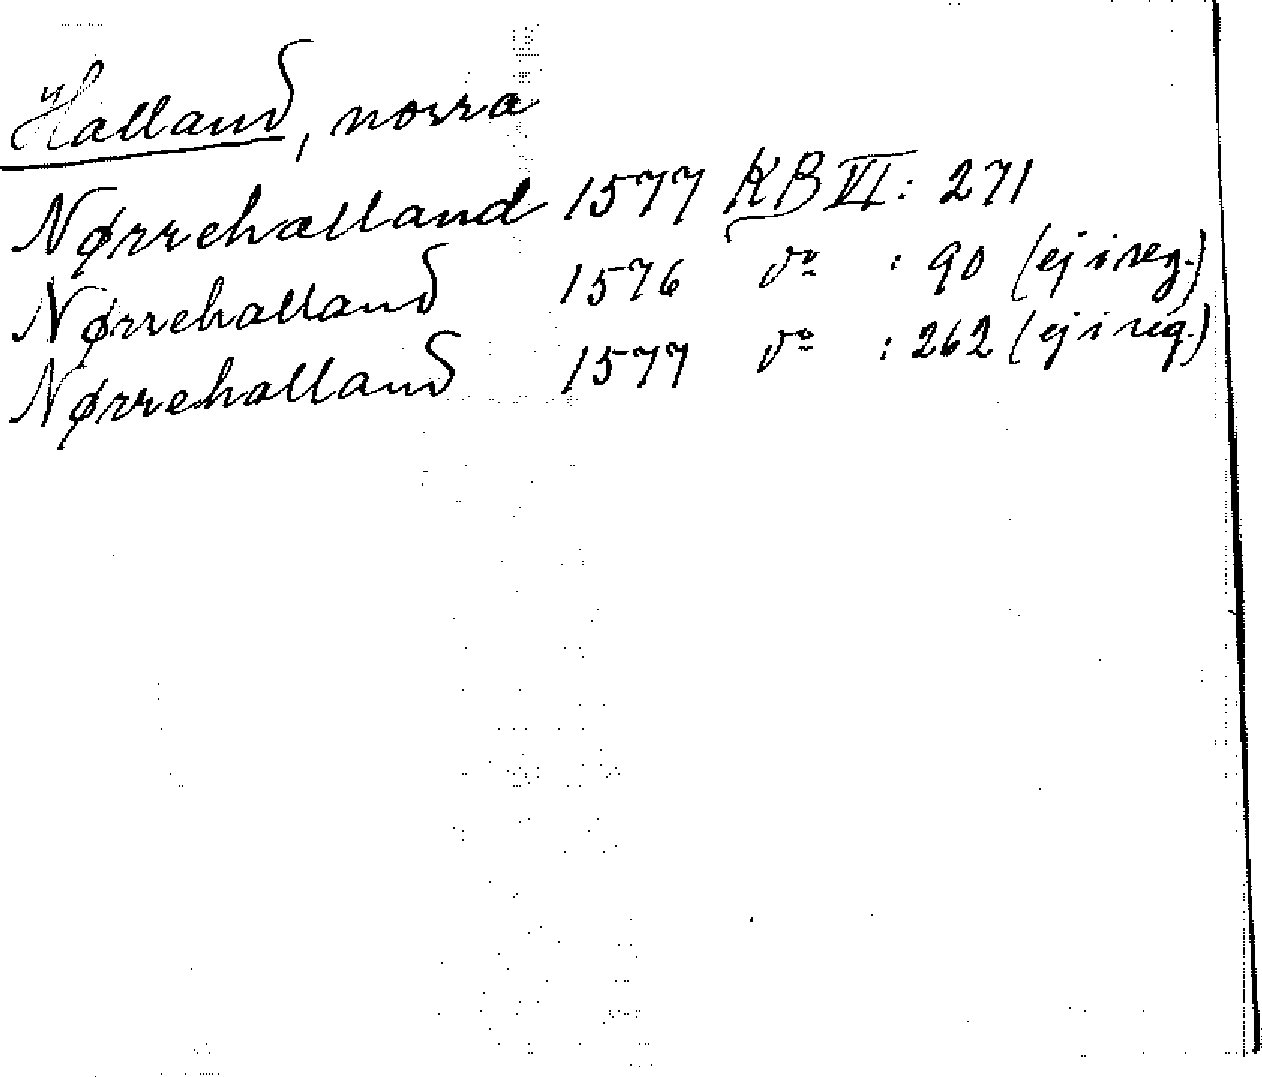 Halland, norra
Nørrehalland 1577 KB VI: 271
Nørrehalland 1576 dº : 90 (ej i reg.)
Nørrehalland 1577 dº : 262 (ej i reg.)